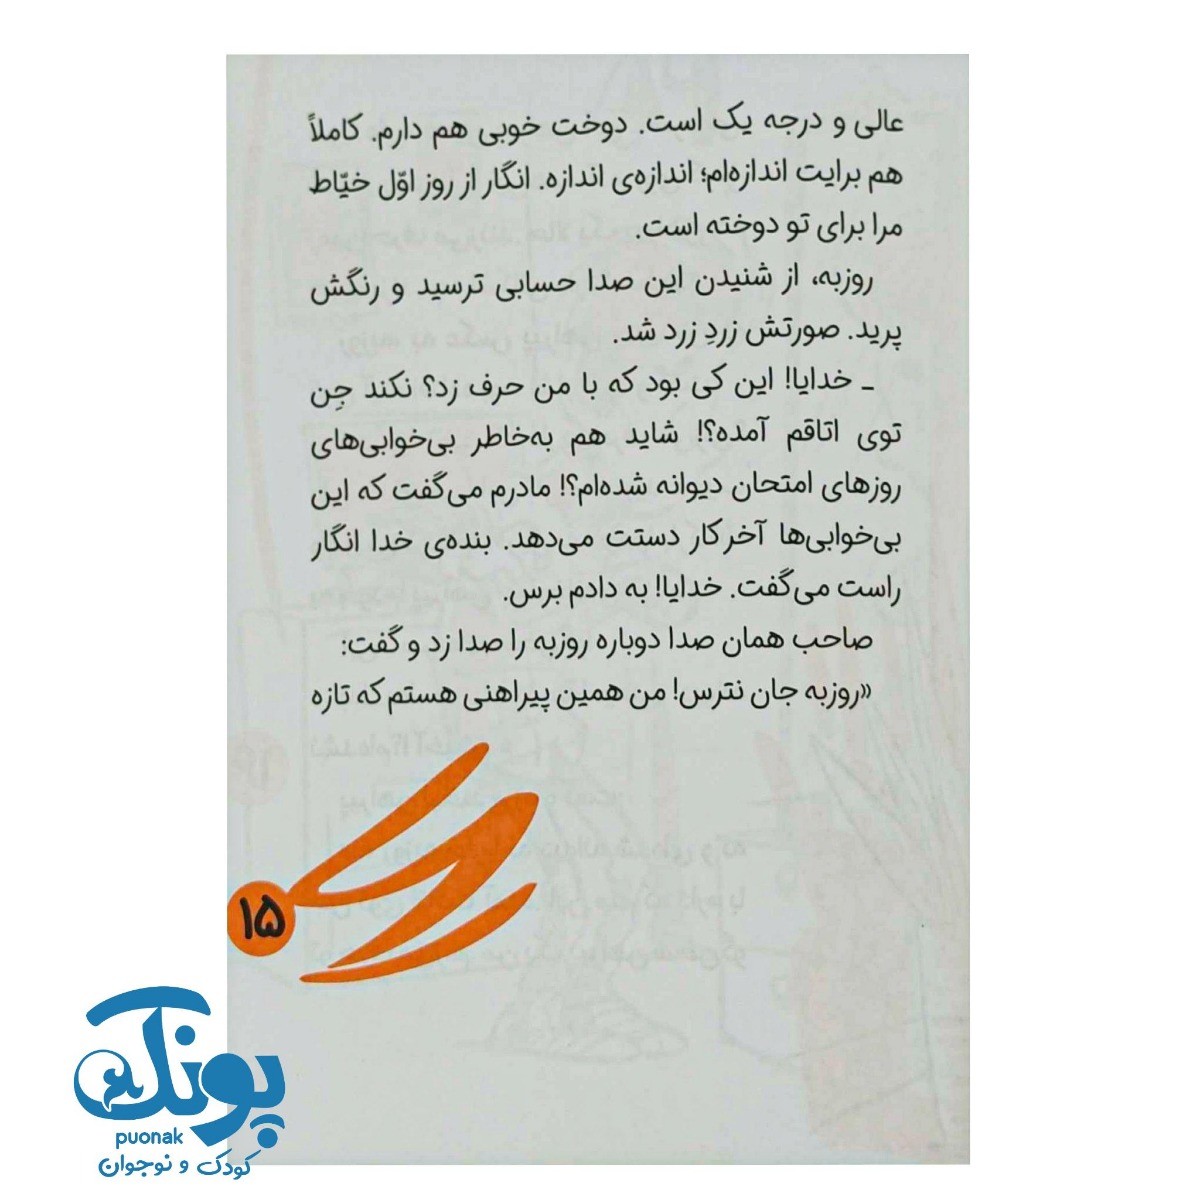 عالی و درجه یک است. دوخت خوبی هم دارم. کاملاً
هم برایت اندازه‌ام؛ اندازه‌ی اندازه. انگار از روز اوّل خیّاط
مرا برای تو دوخته است.
روزبه، از شنیدن این صدا حسابی ترسید و رنگش
پرید. صورتش زردِ زرد شد.
ـ خدایا! این کی بود که با من حرف زد؟ نکند جِن
توی اتاقم آمده؟! شاید هم به‌خاطر بی‌خوابی‌های
روزهای امتحان دیوانه شده‌ام؟! مادرم می‌گفت که این
بی‌خوابی‌ها آخر کار دستت می‌دهد. بنده‌ی خدا انگار
راست می‌گفت. خدایا! به دادم برس.
صاحب همان صدا دوباره روزبه را صدا زد و گفت:
«روزبه جان نترس! من همین پیراهنی هستم که تازه
۱۵
پونک
puonak
کودک و نوجوان